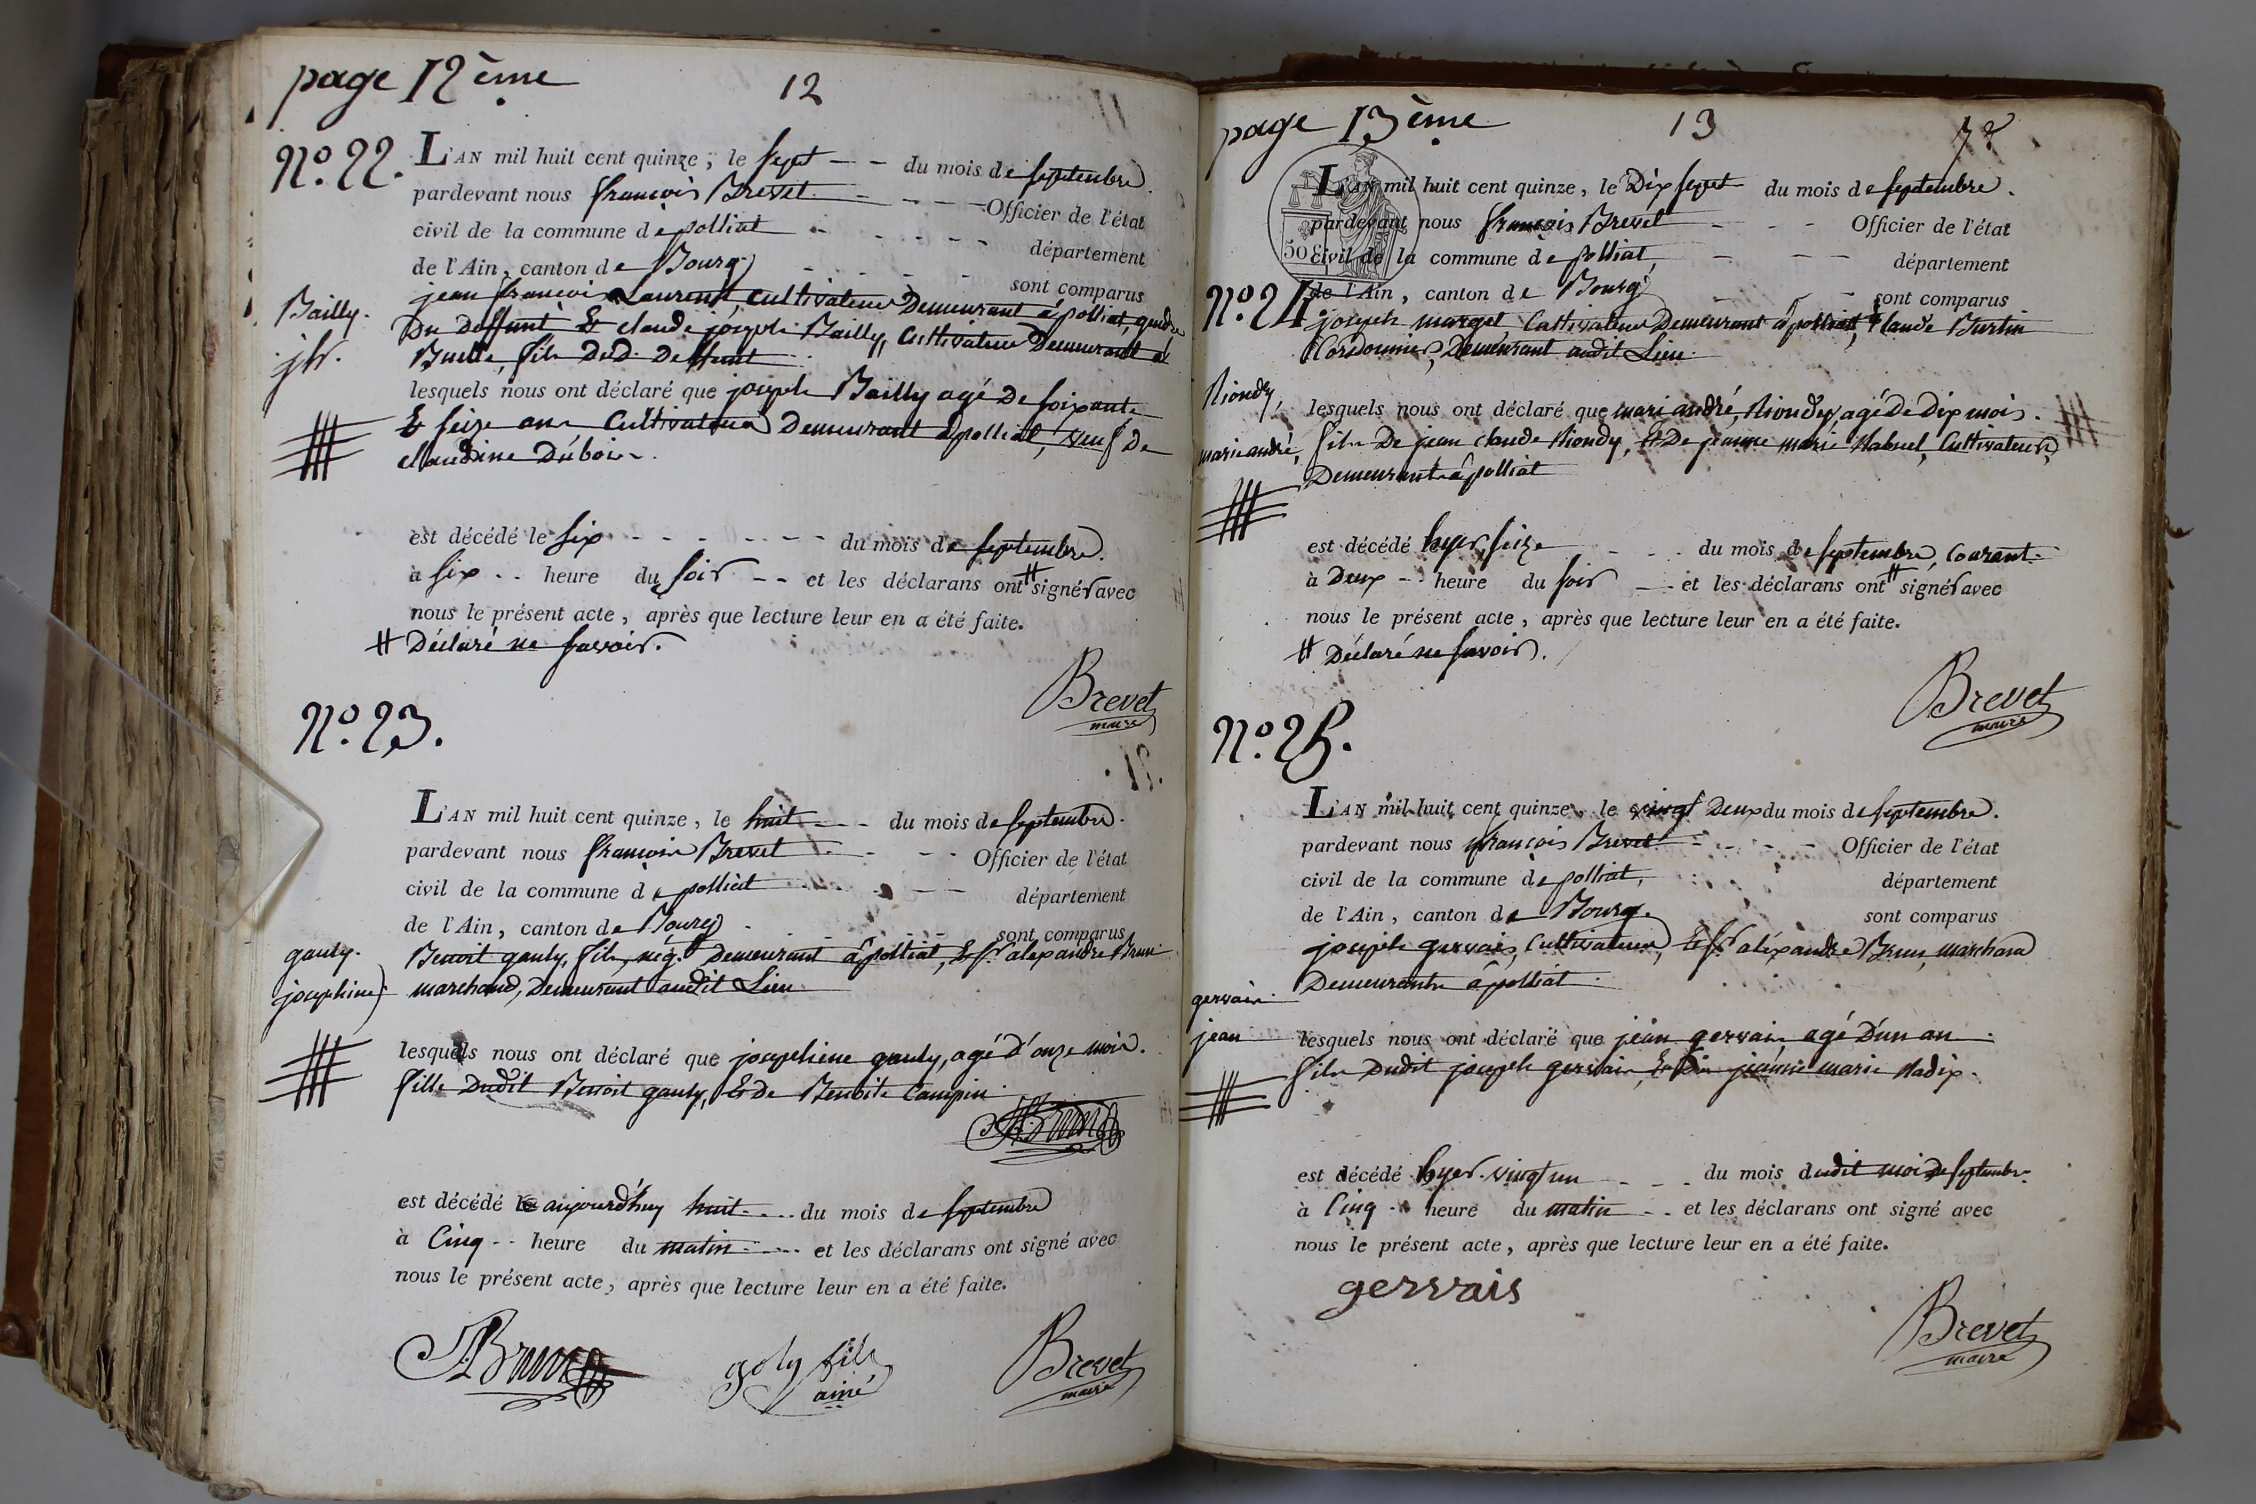 page 12ème
12
N.º 22.
L'AN mil huit cent quinze, le sept du mois de septembre.
pardevant nous françois Brevet Officier de l'état
civil de la commune de polliat département
de l'Ain, canton de Bourg sont comparus
jean françois Laurent, cultivateur Demeurant à polliat, gendre
Du deffunt et claude joseph Bailly, Cultivateur Demeurant à
Buelle, fils dud. deffunt
Bailly.
jh.
lesquels nous ont déclaré que joseph Bailly agé de soixante
Et seize ans Cultivateur Demeurant à polliat, veuf de
claudine Dubois.
est décédé le six du mois de septembre.
à six heure du soir et les déclarans ont # signé avec
nous le présent acte, après que lecture leur en a été faite.
# Déclaré ne savoir.
Brevet
maire
N.º 23.
L'AN mil huit cent quinze, le huit du mois de septembre.
pardevant nous françois Brevet Officier de l'état
civil de la commune de polliat département
de l'Ain, canton de Bourg sont comparus
Benoit gauly, fils, nég.t demeurant à polliat, Et s.r alexandre Brun
marchand, Demeurant audit Lieu
gauly.
josephine
lesquels nous ont déclaré que josephine gauly, agé d'onze mois.
fille Dudit Benoit gauly, Et De Benoite Campin
Brun
est décédé le aujourd'huy huit du mois de septembre
à Cinq heure du matin et les déclarans ont signé avec
nous le présent acte, après que lecture leur en a été faite.
Brun
goly fils
ainé
Brevet
maire
page 13ème
13
L'AN mil huit cent quinze, le Dix sept du mois de septembre.
pardevant nous françois Brevet Officier de l'état
civil de la commune de polliat, département
de l'Ain, canton de Bourg sont comparus
50 c
N.º 24.
joseph margel, Cultivateur Demeurant à polliat, Claude Burtin
Cordonnier, Demeurant audit Lieu.
Niondy,
marie andré,
lesquels nous ont déclaré que marie andré, Niondy, agé de dix mois.
fils De jean claude Niondy, Et De jeanne marie Nabuel, Cultivateurs,
Demeurants à polliat
est décédé le hyer seize du mois de septembre, courant.
à Deux heure du soir et les déclarans ont # signé avec
nous le présent acte, après que lecture leur en a été faite.
# Déclaré ne savoir.
Brevet
maire
N.º 25.
L'AN mil huit cent quinze, le vingt Deux du mois de septembre.
pardevant nous françois Brevet Officier de l'état
civil de la commune de polliat, département
de l'Ain, canton de Bourg. sont comparus
joseph gervais, Cultivateur, Et s.r alexandre Brun, marchand
Demeurants à polliat
gervais
jean
lesquels nous ont déclaré que jean gervais agé D'un an
fils Dudit joseph gervais, Et De jeanne marie Nadix.
est décédé le hyer vingt un du mois dudit mois de septembre.
à Cinq heure du matin et les déclarans ont signé avec
nous le présent acte, après que lecture leur en a été faite.
gervais
Brevet
maire